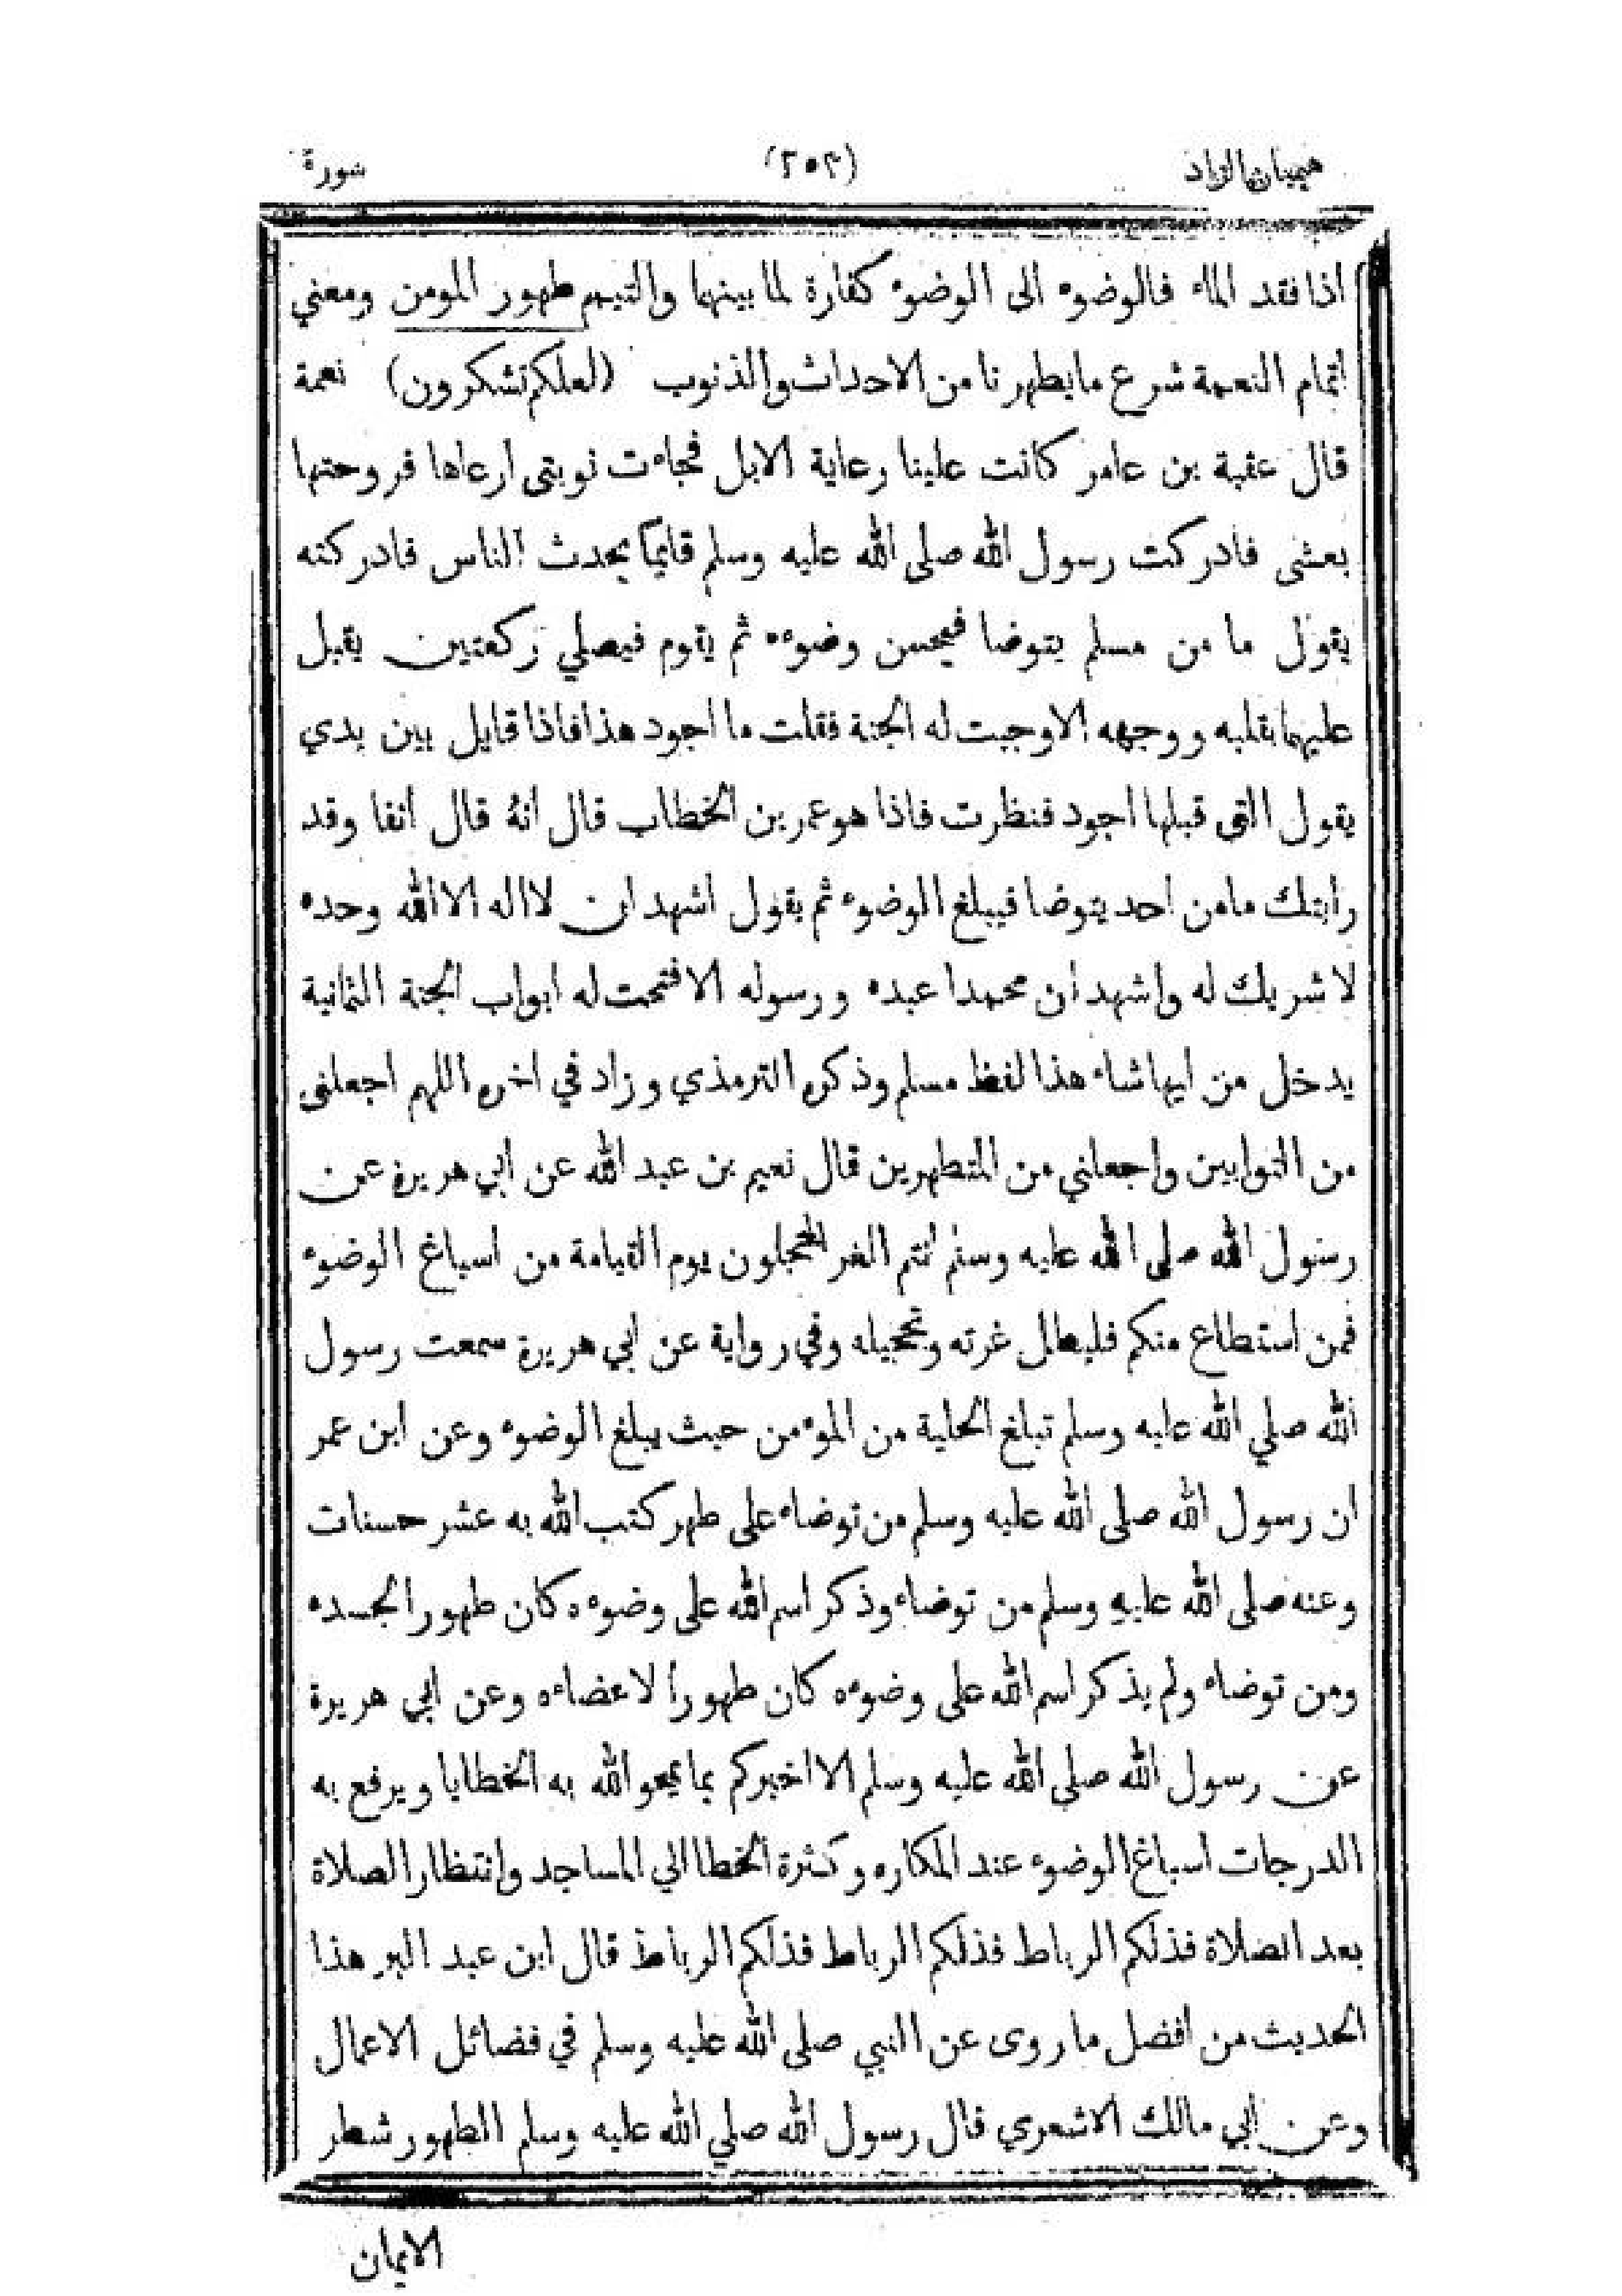 هيميان الزاد (٢٥٤) سورة
اذا فقد الماء فالوضوء الى الوضوء كفارة لما بينهما والتيمم طهور المومن ومعني
اتمام النعمة شرع ما يطهرنا من الاحداث والذنوب (لعلكم تشكرون) نعمة
قال عقبة بن عامر كانت علينا رعاية الابل فجاءت نوبتى ارعاها فروحتها
بعشى فادركت رسول الله صلى الله عليه وسلم قايما يحدث الناس فادركته
يقول ما من مسلم يتوضا فيحسن وضوءه ثم يقوم فيصلي ركعتين يقبل
عليهما بقلبه ووجهه الا وجبت له الجنة فقلت ما اجود هذا فاذا قايل بين يدي
يقول التى قبلها اجود فنظرت فاذا هو عمر بن الخطاب قال انه قال انفا وقد
رأيتك ما من احد يتوضا فيبلغ الوضوء ثم يقول اشهد ان لا اله الا الله وحده
لا شريك له واشهد ان محمدا عبده ورسوله الا فتحت له ابواب الجنة الثمانية
يدخل من ايها شاء هذا لفظ مسلم وذكره الترمذي وزاد في اخره اللهم اجعلنى
من التوابين واجعلني من المتطهرين قال نعيم بن عبد الله عن ابي هريرة عن
رسول الله صلى الله عليه وسلم انتم الغر المحجلون يوم القيامة من اسباغ الوضوء
فمن استطاع منكم فليطل غرته وتحجيله وفي رواية عن ابي هريرة سمعت رسول
الله صلي الله عليه وسلم تبلغ الحلية من الموءمن حيث يبلغ الوضوء وعن ابن عمر
ان رسول الله صلى الله عليه وسلم من توضاء على طهر كتب الله به عشر حسنات
وعنه صلى الله عليه وسلم من توضاء وذكر اسم الله على وضوءه كان طهورا لجسده
ومن توضاء ولم يذكر اسم الله على وضوءه كان طهورا لاعضاءه وعن ابي هريرة
عن رسول الله صلى الله عليه وسلم الا اخبركم بما يمحو الله به الخطايا ويرفع به
الدرجات اسباغ الوضوء عند المكاره وكثرة الخطا الي المساجد وانتظار الصلاة
بعد الصلاة فذلكم الرباط فذلكم الرباط فذلكم الرباط قال ابن عبد البر هذا
الحديث من افضل ما روى عن النبي صلى الله عليه وسلم في فضائل الاعمال
وعن ابي مالك الاشعري قال رسول الله صلي الله عليه وسلم الطهور شطر
الايمان